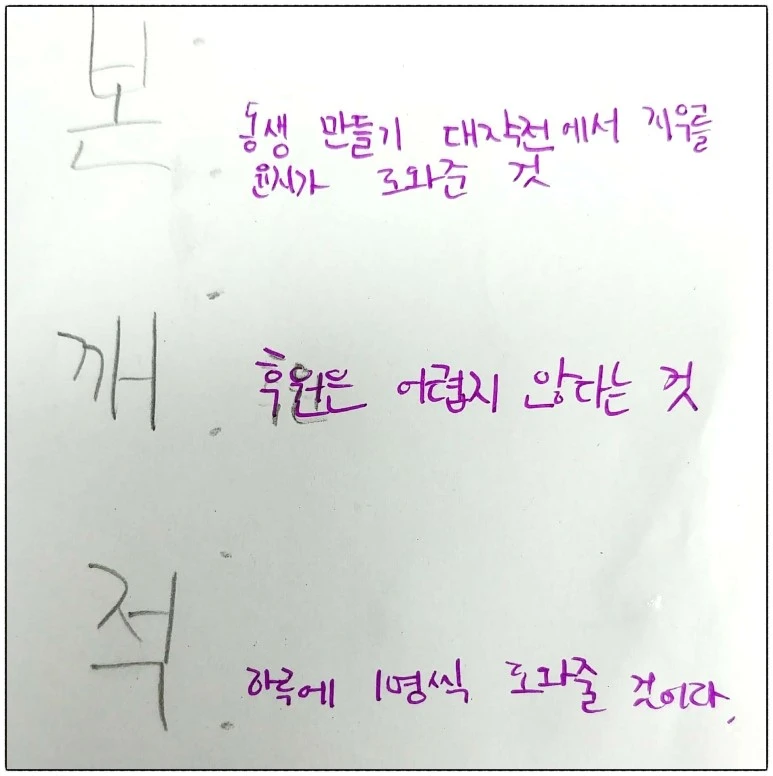 본 :
동생 만들기 대작전에서 지우를
윤서가 도와준 것
깨 :
후원은 어렵지 않다는 것
적 :
하루에 1명씩 도와줄 것이다.